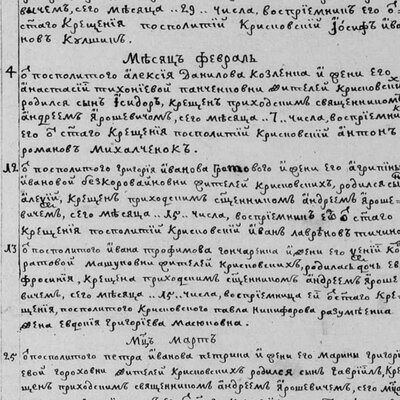 вычемъ, сего мѣсяца ..29.. числа, воспрїемникъ его ѿ с
таго Крещенїя посполитїй Крисковскїй Іѡсифъ ива
новъ Кулшинъ.
Мѣсяцъ Февраль
4 ѿ посполитого алексїя Данилова козленка и жени его
анастасїй тихонїевой панченковни жителей Крисковских
родился сынъ Ісидоръ, крещенъ приходскимъ священником
андреемъ Ярошевичемъ, сего мѣсяца ..7.. числа, воспрїемник
его ѿ стаго Крещенїя посполитїй Крисковскїй антонъ
романовъ Михалченокъ.
12 ѿ посполитого григорїя иванова Громового и жени его агрипини
ивановой безкоровайновни жителей Крисковскихъ, родился сы
алеѯїй, крещенъ приходскимъ сщенникомъ андреемъ яроше
вичемъ, сего мѣсяца ..15.. числа, воспрїемникъ его ѿ стаго
Крещенїя посполитїй Крисковскїй иванъ лаврѣновъ
13 ѿ посполитого ивана трофимова гончаренка и жени его
жителей Крисковскихъ, родилась дочь ев
фросинїя, крещена приходскимъ сщенникомъ андреемъ яроше
вичемъ, сего мѣсяца ..15.. числа, воспрїемница ей ѿ стаго Кре
щенїя, посполитого Крисковского павла никифорова разумѣенка
жена евдокїя григорїева масюковна.
Мцъ Мартъ
25 ѿ посполитого петра иванова петрика и жени его марини григорї
евой гороховни жителей Крисковскихъ родился сынъ гаврїилъ, Кре
щенъ приходскимъ священникомъ андреемъ ярошевичемъ, сего